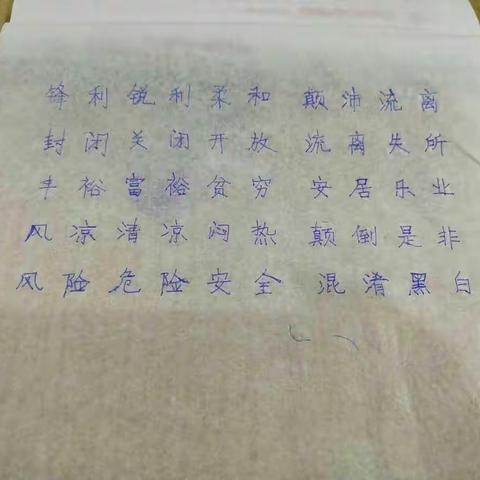 锋利锐利柔和 颠沛流离
封闭关闭开放 流离失所
丰裕富裕贫穷 安居乐业
风凉清凉闷热 颠倒是非
风险危险安全 混淆黑白